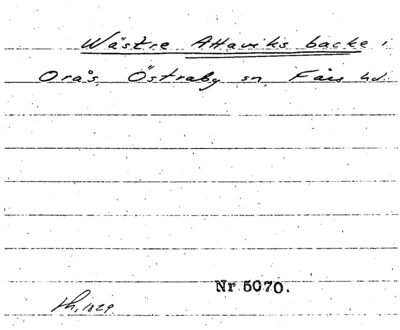 Wästre Attaviks backe i
Orås, Östraby sn, Färs hd.
Nr 5070.
1829